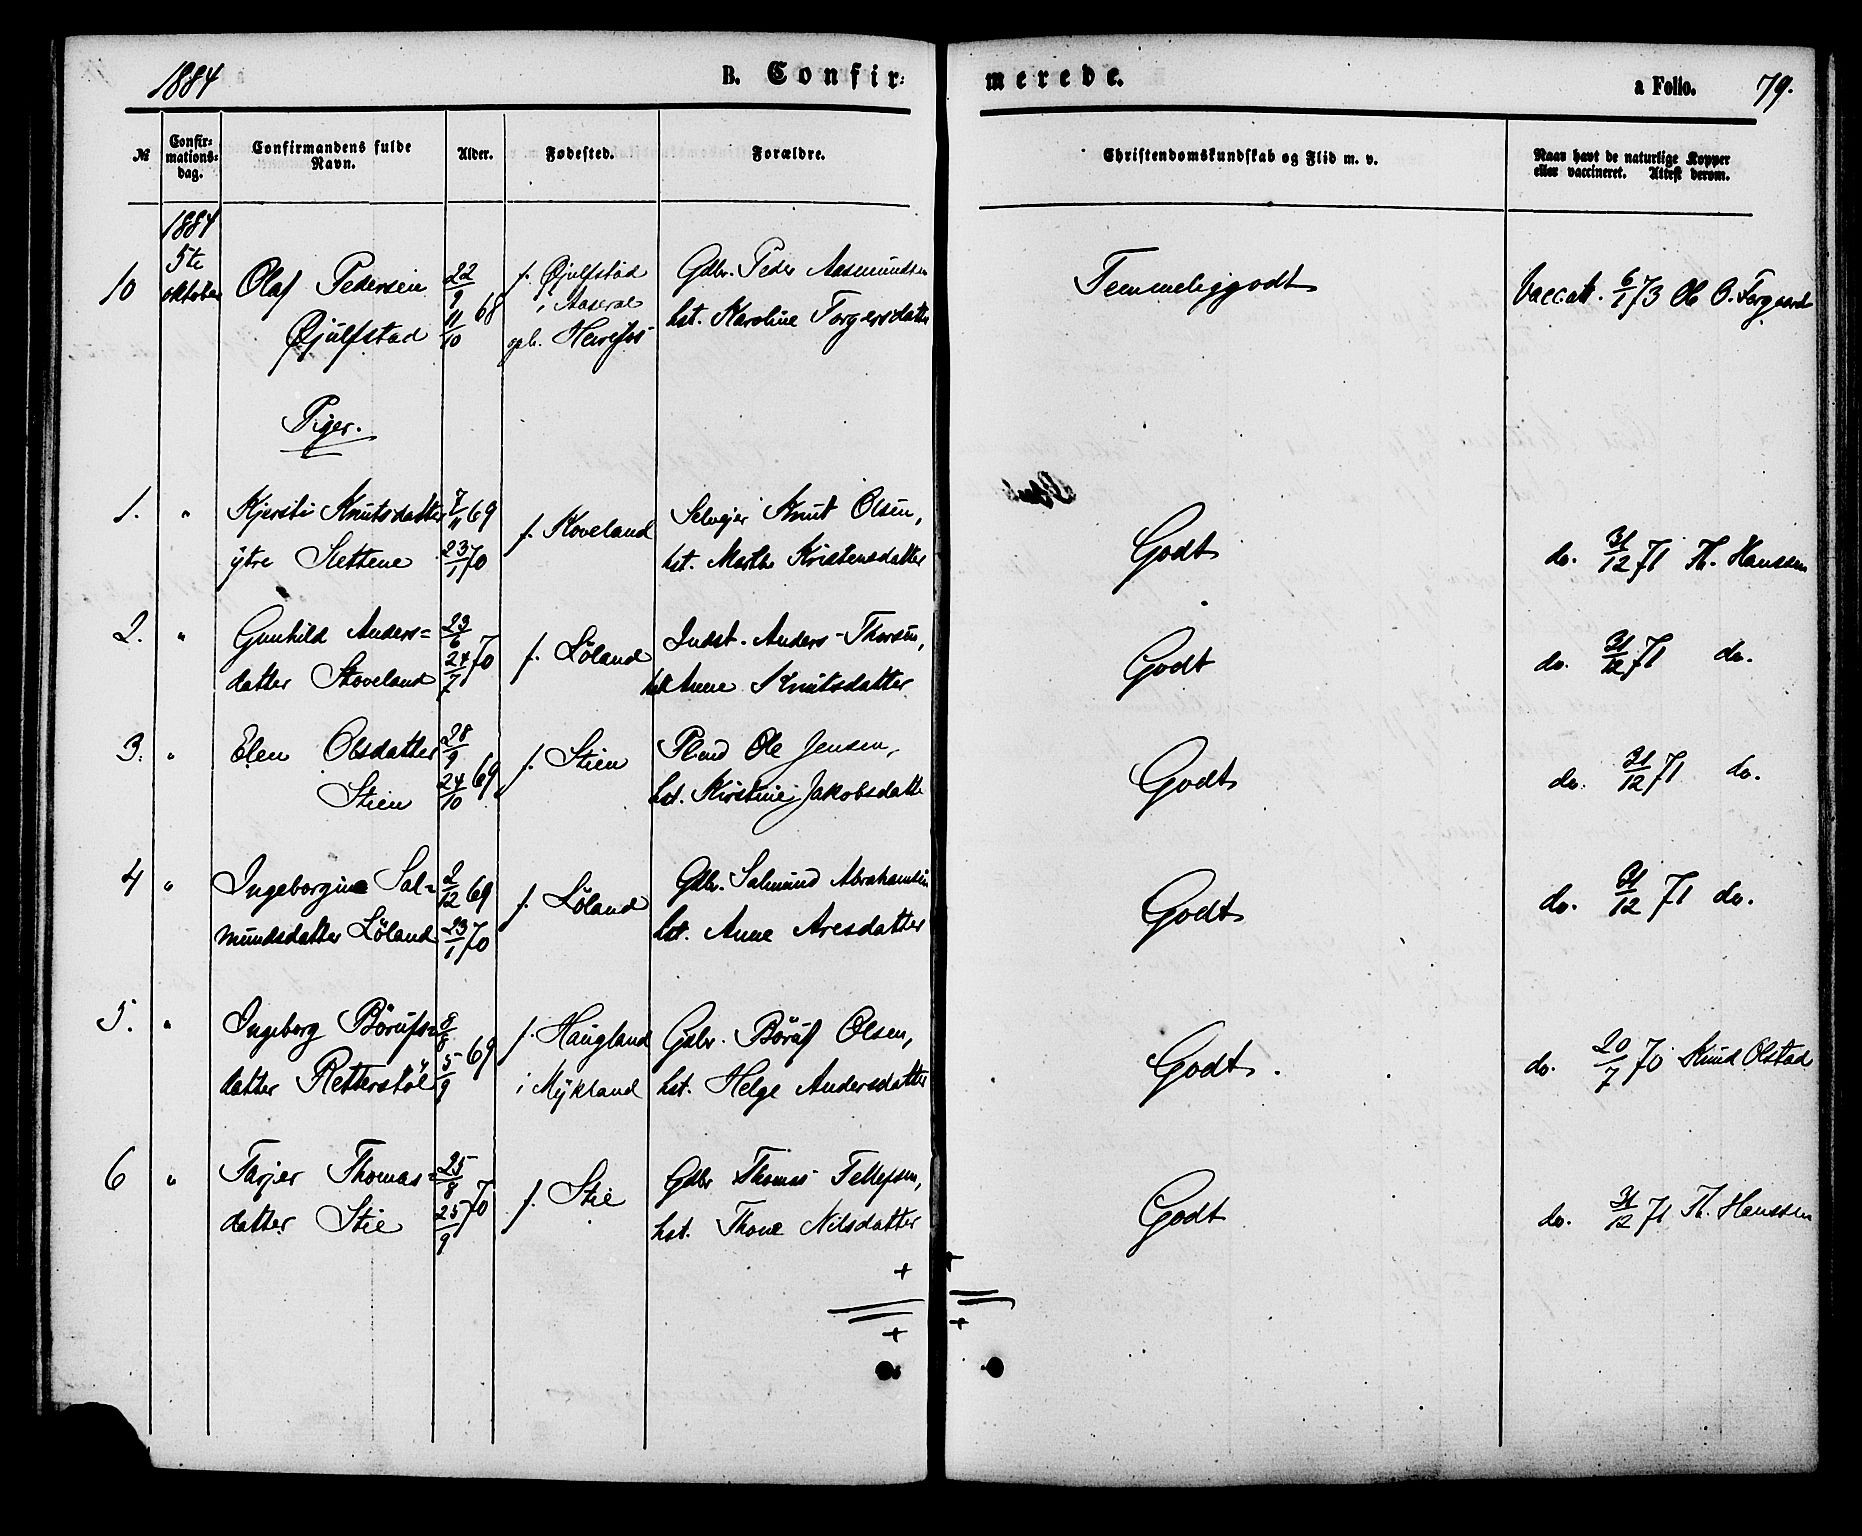 1884 B. Confir= merede. a Folio. 79.
№ Confir=mations=dag. Confirmandens fulde Navn. Alder. Fødested. Forældre. Christendomskundskab og Flid m. v. Naar havt de naturlige Kopper eller vaccineret. Attest derom.
1884
10 5te oktober Olaf Pedersen 22/9 f. Øjulfstad Gdbr. Peder Aasmundsen Temmeliggodt Vaccat. 6/1 73 O.
Øjulfstad 11/10 68 i Aaseral hst. Karoline Torgersdatter
Piger.
1. " Kjersti Knutsdatter 7/11 69 f. Koveland Selvejer Knut Olsen, Godt do. 31/12 71 Th. Hanssen
ytre Slettene 23/1 70 hst. Marthe Kristensdatter
2. " Gunhild Anders= 23/6 f. Løland Indst. Anders Thorsen, Godt do. 31/12 71 do.
datter Stoveland 24/7 70 hst Anne Knutsdatter
3. " Elen Olsdatter 28/9 f. Stien Plmd Ole Jensen, Godt do. 31/12 71 do.
Stien 24/10 69 hst. Kirstine Jakobsdatte
4 " Ingeborgine Sal= 2/12 69 f. Løland Gdbr. Salmund Abrahamsen Godt do. 31/12 71 do.
mundsdatter Løland 23/1 70 hst. Anne Aresdatter
5. " Ingeborg Börufs= 8/8 f. Haugland Gdbr. Böruf Olsen, Godt. do. 20/7 70 Knud Olstad
datter Retterstöl 5/9 69 i Mykland hst. Helge Andersdatter
6 " Tarjer Thomas= 25/8 f. Stie Gdbr Thomas Tellefsen, Godt do. 31/12 71 Th. Hanssen
datter Stie 25/9 70 hst. Thone Nilsdatter